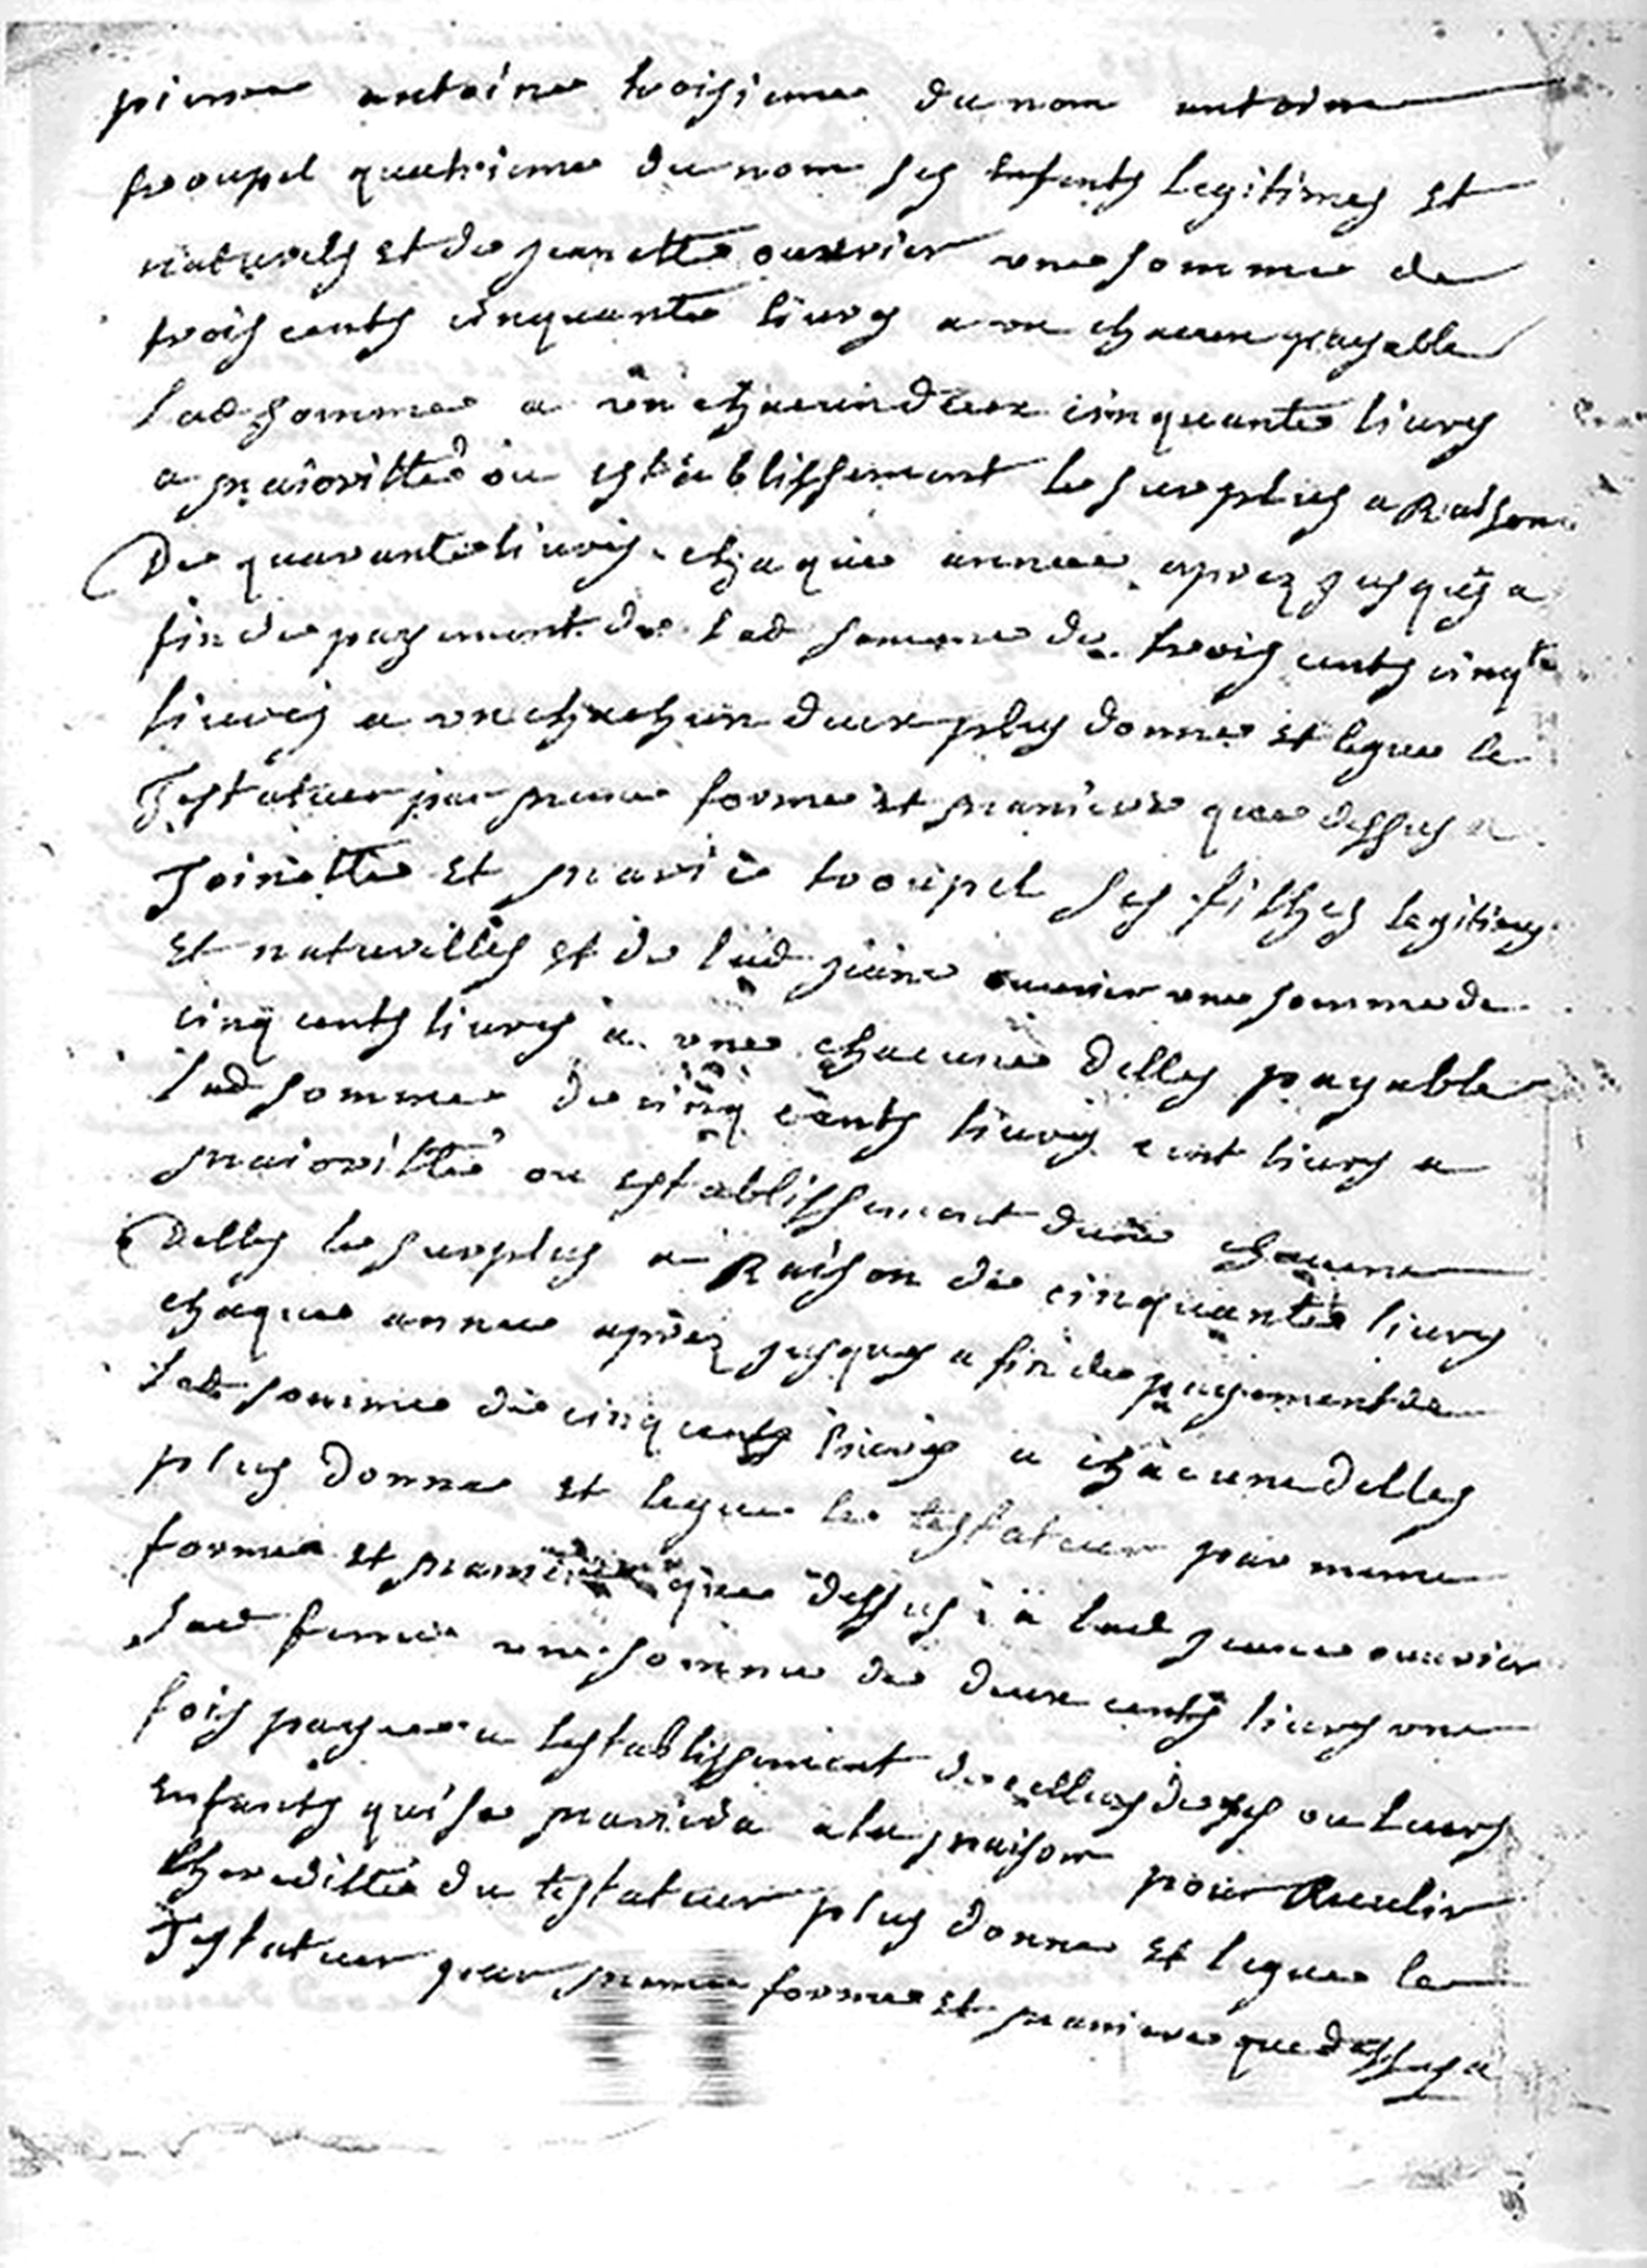 pierre antoine troisieme du nom antoine
troupel quatrieme du nom ses enfents legitimes et
naturels et de jeanette ouvrier une somme de
trois cents cinquante livres a un chacun payable
lad somme a un chacun deux cinquante livres
a maioritté ou establissement le surplus a Raison
De quarante livres chaque année aprez jusques a
fin de payement de lad somme de trois cents cinqte
livres a un chachun deux plus donne et legue le
Testateur par meme forme et maniere que dessus a
Toinette et marie troupel ses filhes legitimes
et naturelles et de lad jeane ouvrier une somme de
cinq cents livres a une chacune delles payable
lad somme de cinq cents livres cent livres a
maioritté ou establissement dune chacune
Delles le surplus a Raison de cinquante livres
chaque année aprez jusques a fin de payement de
lad somme de cinq cents livres a chacune delles
plus donne et legue le testateur par meme
forme et maniere que dessus a lad jeane ouvrier
sad femme une somme de deux cents livres une
fois payee a lestablissement de celluy de ses ou leurs
enfants qui se mariera a la maison pour Recullir
lhereditté du testateur plus donne et legue le
Testateur par meme forme et maniere que dessus a